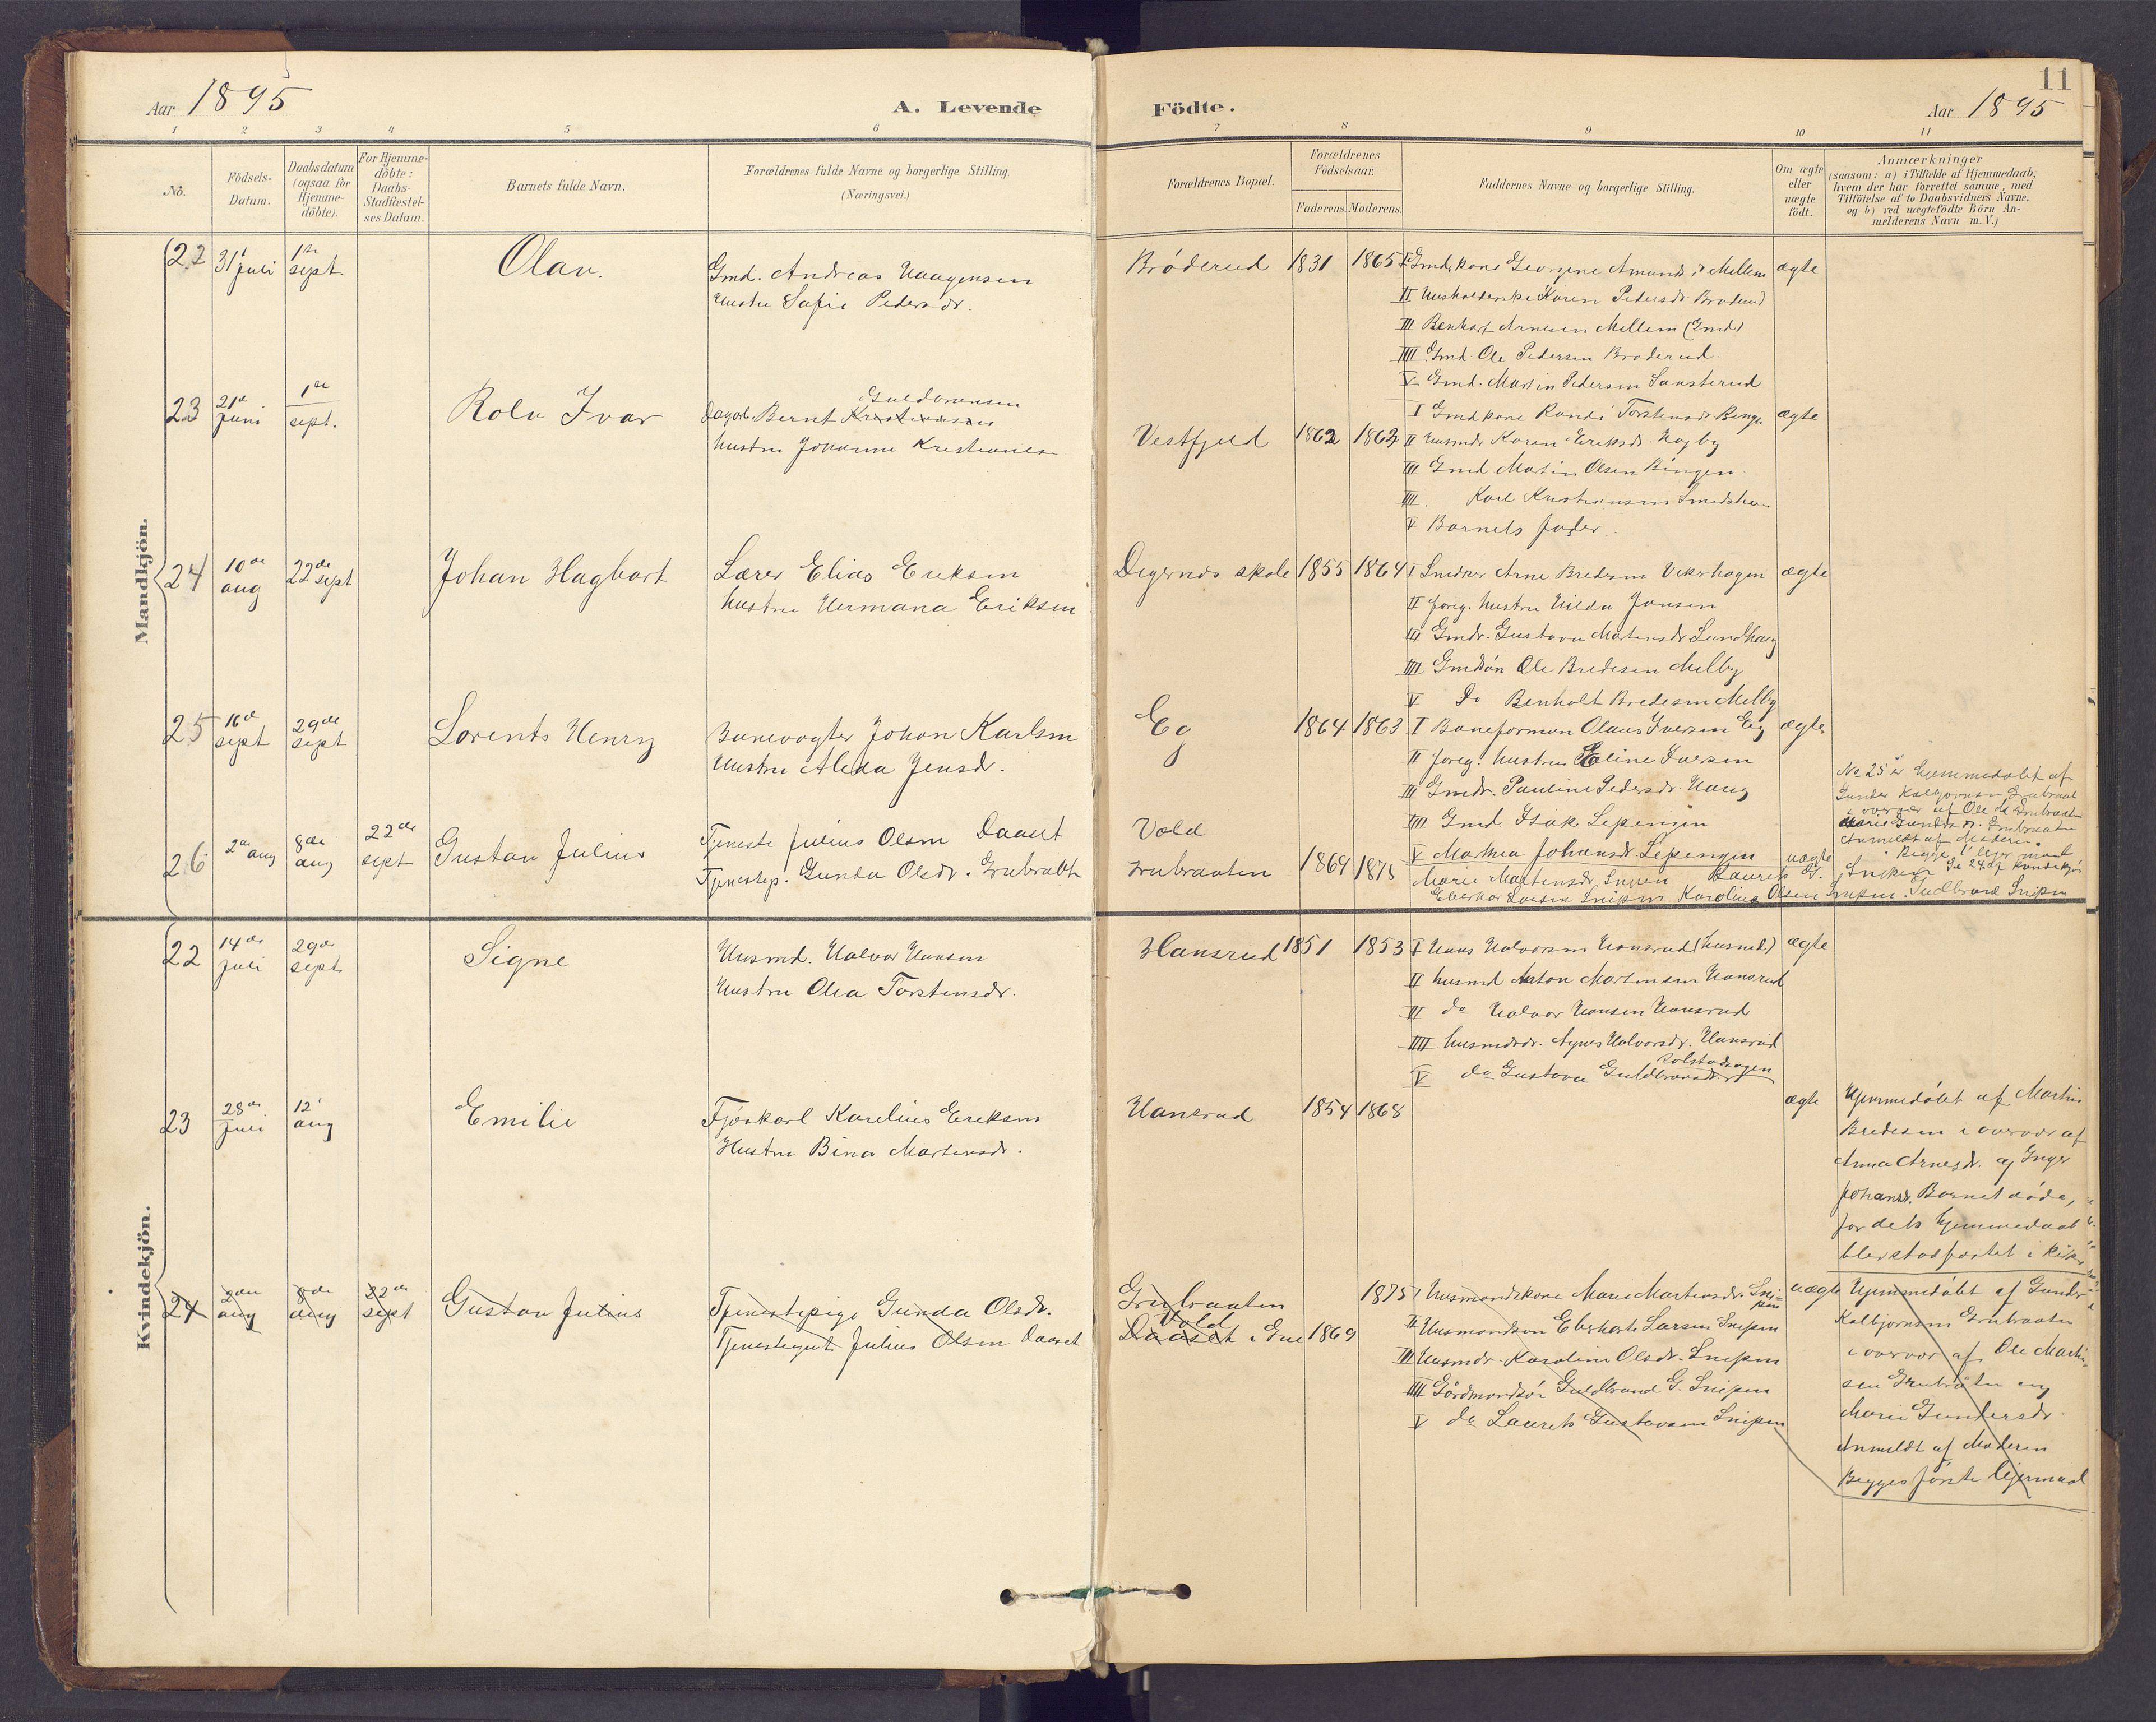 11
Aar 1895
A. Levende
Födte.
Aar 1895
1 2 3 4 5 6 7 8 9 10 11
No.
Födsels-
Datum.
Daabsdatum
(ogsaa for
Hjemme-
döbte).
For Hjemme-
döbte:
Daabs-
Stadfæstel-
ses Datum.
Barnets fulde Navn.
Forældrenes fulde Navne og borgerlige Stilling.
(Næringsvei.)
Forældrenes Bopæl.
Forældrenes
Födselsaar.
Faderens. Moderens.
Faddernes Navne og borgerlige Stilling.
Om ægte
eller
uægte
födt.
Anmærkninger
(saasom: a) i Tilfælde af Hjemmedaab,
hvem der har forrettet samme, med
Tilföielse af to Daabsvidners Navne,
og b) ved uægtefödte Börn An-
melderens Navn m. V.)
Mandkjön.
22 31' juli 1ste sept. Olav.
Gmd. Andreas Haagensen
Hustru Sofie Pedersdr.
Bröderud 1831 1865
I Gmdskone Georgine Amundsdr Mellem
II Husholderske Karen Pedersdr Bröderud
III Benhart Arnesen Mellem (Gmd)
IIII Gmd. Ole Pedersen Bröderud.
V Gmd. Martin Pedersen
ægte
23 21de juni 1ste sept. Rolv Ivar
Guldbransen
Dagarb. Bernt Kristiansen
hustru Johanne Kristiansen
Vestfjeld 1862 1862
I Gmdkone Randi Torstensdr Bingen
II Husmdr Karen Eriksdr. Hagby
III Gmd Martin Olsen Bingen
IIII. Karl Kristiansen
V Barnets fader.
ægte
24 10de aug 22de sept Johan Hagbart
Lærer Elias Eriksen
hustru Hermana Eriksen
Digernes skole 1855 1864
I Snedker Arne Bredesen Vikerhagen
II foreg. hustru Hilda Jansen
III Gmdr. Gustava Martinsdr Lundhaug
IIII Gmdsön Ole Bredesen Melby
V Do Benholt Bredesen Melby
ægte
25 16de sept 29de sept Lorents Henry
Banevogter Johan Karlsen
Hustru Aleda Jensdr.
Eg 1864 1863
I Baneformen Olaus Iversen Eg
II foreg. hustru Eline Iversen
III Gmdr. Pauline Pedersdr. Haug
IIII Gmd. Isak Sepengen
V Marthea Johansdr. Sepengen
ægte
26 2de aug 8de aug 22de sept Gustav Julius
Tjeneste Julius Olsen Daaset
Tjenestep. Gunda Olsdr. Grubraatt
Vold
Grubraaten 1869 1875
Marie Martinsdr. Snipen Laurits G. Snipen
Eberhar Larsen Snipen Karoline Olsen Snipen. Gudbrand Snipen
uægte
No 25 er hjemmedøbt af
Gunder Kolbjørnsen Grubraat
i overvær af Ole M. Grubraaten
Marie Gundersdr. Grubraaten
Anmeldt af Moderen.
Begges 1' lejermaal
Se 24 af kvindekjøn
Kvindekjön.
22 14de juli 29de sept. Signe
Husmd. Halvor Hansen
Hustru Olea Torstensdr.
Hansrud 1851 1853
I Hans Halvorsen Hansrud (husmd.)
II husmd Anton Martinsen Hansrud
III do Halvor Hansen Hansrud
IIII husmdsdr. Agnes Halvorsdr. Hansrud
Rolstadeagen
V do Gustava Guldbransdr.
ægte
23 28de juli 12' aug Emilie
Fjøskarl Karelius Eriksen
Hustru Bina Martinsdr.
Hansrud 1854 1868
ægte
Hjemmedöbt af Martin
Bredesen i overvær af
Anna Arnesdr. og Inger
Johansdr. Barnet döde,
for dets hjemmedaab
blev stadfæstet i kirken
24 2den aug 8de aug 22de sept Gustav Julius
Tjenestepige Gunda Olsdr.
Tjenestegut Julius Olsen Daaset
Grubraaten
Vold
Daaset i Grue 1869 1875
I Husmandskone Marie Martinsdr. Snipen
II Husmandsøn Eberharts Larsen Snipen
III Husmdr. Karoline Olsdr. Snipen
IIII Gårdmandsön Guldbrand G. Snipen
V do Laurits Gustavsen Snipen
uægte
Hjemmedöbt af Gunder
Kolbjørnsen Grubraaten
i overvær af Ole Martin-
sen Grubråten og
Marie Gundersdr.
Anmeldt af Moderen
Begges förste lejermaal